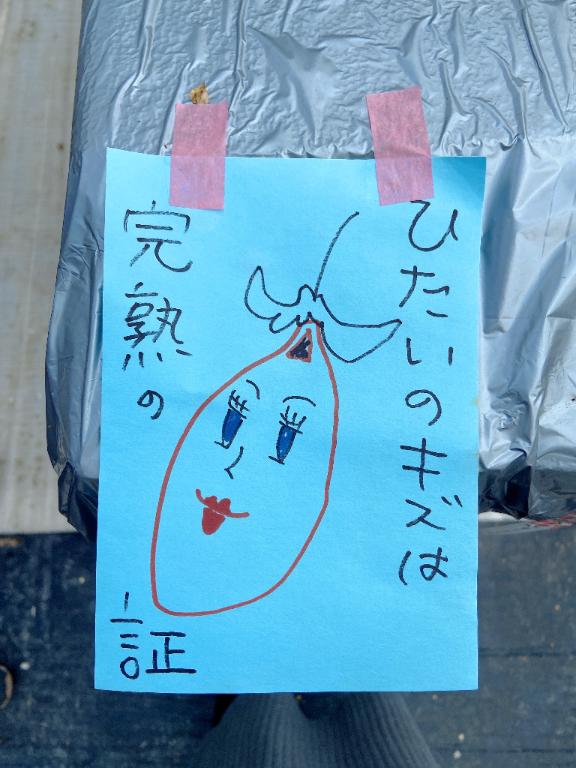 ひたいのキズは
完熟の証